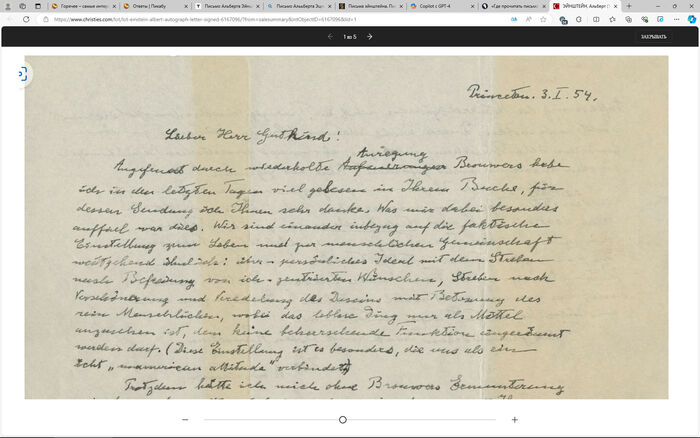 Горячее – самые интер
Ответы | Пикабу
Письмо Альберта Эйн
Письмо Альберта Эш
Письма эйнштейна. П
Copilot с GPT-4
«Где прочитать письмо
ЭЙНШТЕЙН, Альберт (
https://www.christies.com/lot/lot-einstein-albert-autograph-letter-signed-6167096/?from=salesummary&intObjectID=6167096&lid=1
1 из 5
ЗАКРЫВАТЬ
Princeton. 3. I. 54.
Lieber Herr Gutkind!
Anregung
Angefeuert durch wiederholte Brouwers habe
ich in den letzten Tagen viel gelesen in Ihrem Buche, für
dessen Sendung ich Ihnen sehr danke. Was mir dabei besonders
auffiel war dies. Wir sind einander inbezug auf die faktische
Einstellung zum Leben und zur menschlichen Gemeinschaft
weitgehend ähnlich: persönliches Ideal mit dem Streben
nach Befreiung von ich-zentrierten Wünschen, Streben nach
Verschönerung und Veredelung des Daseins mit Betonung des
rein Menschlichen, wobei das leblose Ding nur als Mittel
anzusehen ist, dem keine beherrschende Funktion eingeräumt
werden darf. (Diese Einstellung ist es besonders, die uns als ein
ächt „unamerican attitude" verbindet)
Trotzdem hätte ich mich ohne Brouwers Ermunterung